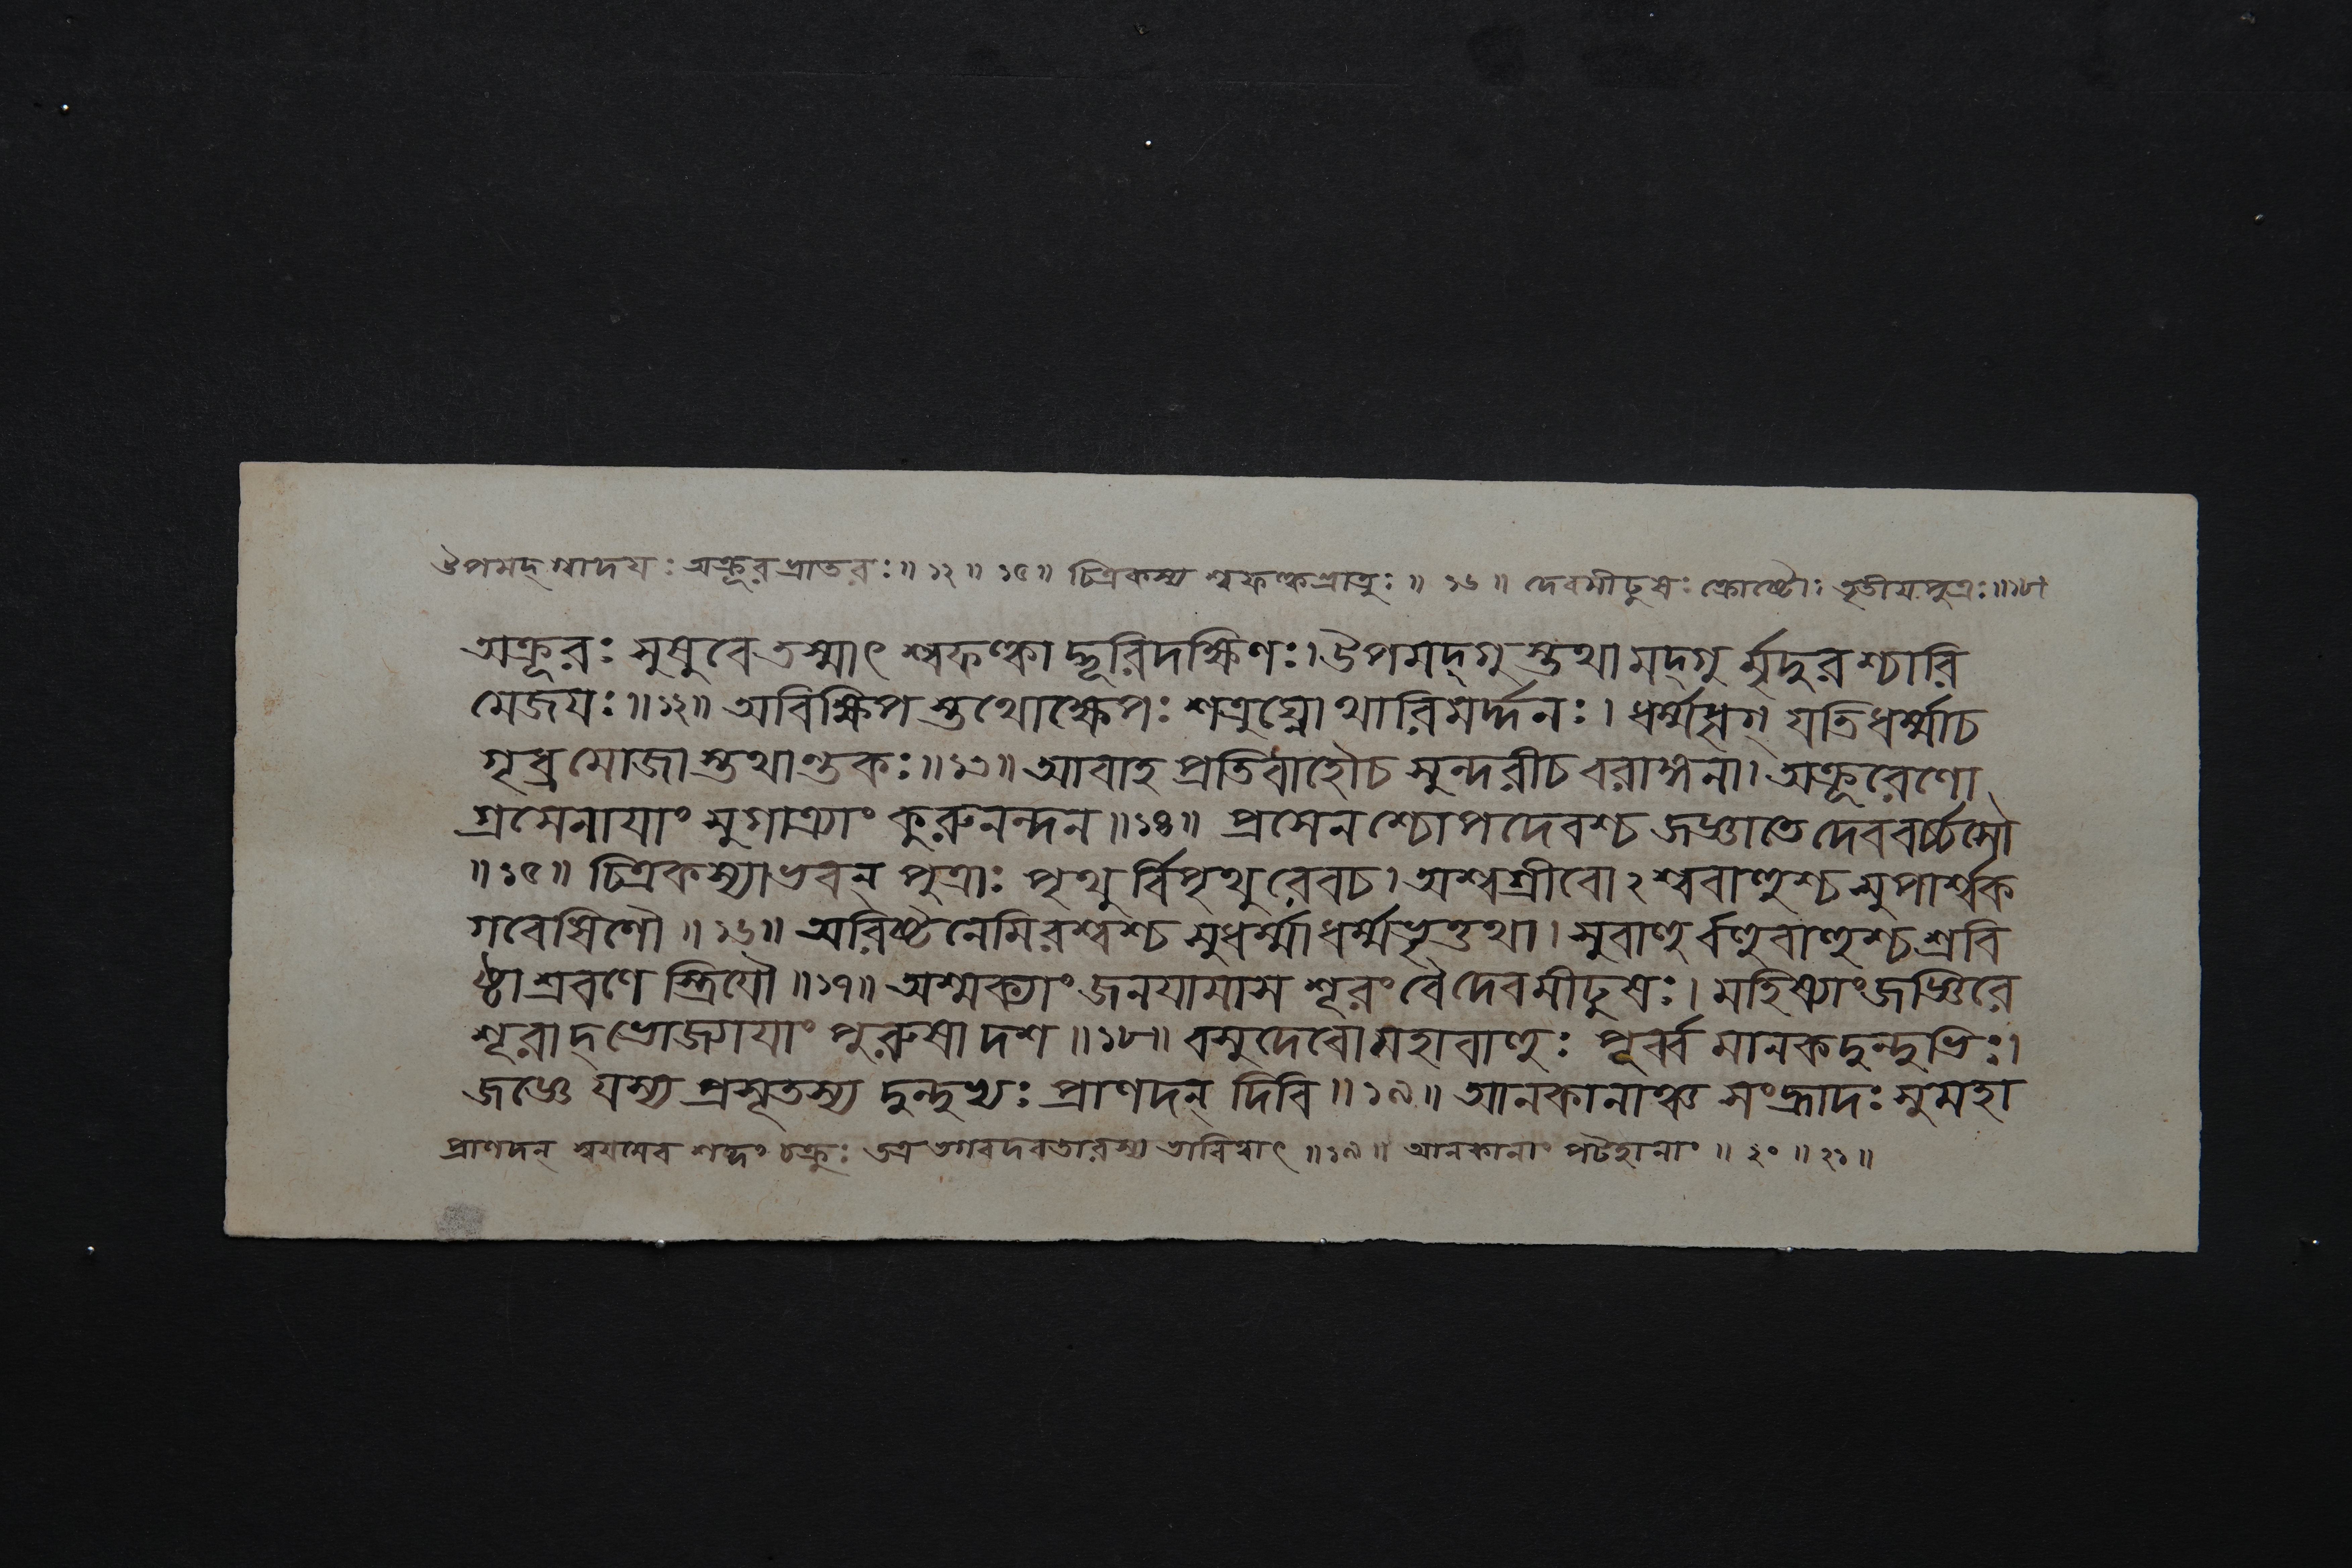 উপমদ্গ্বাদয়ঃ অক্রূরভ্রাতরঃ॥ ১২॥ ১৫॥ চিত্রকস্য শ্বফল্কভ্রাতুঃ॥ ১৬॥ দেবমীঢুষঃ ক্রোষ্টোঃ তৃতীয়পুত্রঃ॥ ১৮॥
অক্রূরঃ সুষুবে তস্মাৎ শ্বফল্কাদ্ভূরিদক্ষিণঃ। উপমদ্গুস্তথা মদ্গুর্মৃদুরশ্চারি
মেজয়ঃ॥ ১২॥ অবিক্ষিপস্তথোক্ষেপঃ শত্রুঘ্নোথারিমর্দ্দনঃ। ধর্ম্মধৃগ্ যতিধর্ম্মা চ
গৃধ্রমোজাস্তথাণ্ডকঃ॥ ১৩॥ আবাহ প্রতিবাহৌ চ সুন্দরী চ বরাঙ্গনা। অক্রূরেণো
গ্রসেনায়াং সুগাত্র্যাং কুরুনন্দন॥ ১৪॥ প্রসেনশ্চোপদেবশ্চ জজ্ঞাতে দেববর্চ্চসৌ
॥ ১৫॥ চিত্রকস্যাভবন্ পুত্রাঃ পৃথুর্বিপৃথুরেব চ। অশ্বগ্রীবোঽশ্ববাহুশ্চ সুপার্শ্বক
গবেষিণৌ॥ ১৬॥ অরিষ্টনেমিরশ্বশ্চ সুধর্ম্মা ধর্ম্মভৃত্তথা। সুবাহুর্বহুবাহুশ্চ শ্রবি
ষ্ঠা শ্রবণে স্ত্রিয়ৌ॥ ১৭॥ অশ্মক্যাং জনয়ামাস শূরং বৈ দেবমীঢুষঃ। মহিষ্যাং জজ্ঞিরে
শূরাদ্ ভোজ্যায়াং পুরুষা দশ॥ ১৮॥ বসুদেবো মহাবাহুঃ পূর্ব্বমানকদুন্দুভিঃ।
জজ্ঞে যস্য প্রসূতস্য দুন্দুভ্যঃ প্রাণদন্ দিবি॥ ১৯॥ আনকানাঞ্চ সংহ্রাদঃ সুমহা
প্রাণদন্ স্বয়মেব শব্দং চক্রুঃ তত্র ভগবদবতারস্য ভাবিত্বাৎ॥ ১৯॥ আনকানাং পটহানাং॥ ২০॥ ২১॥